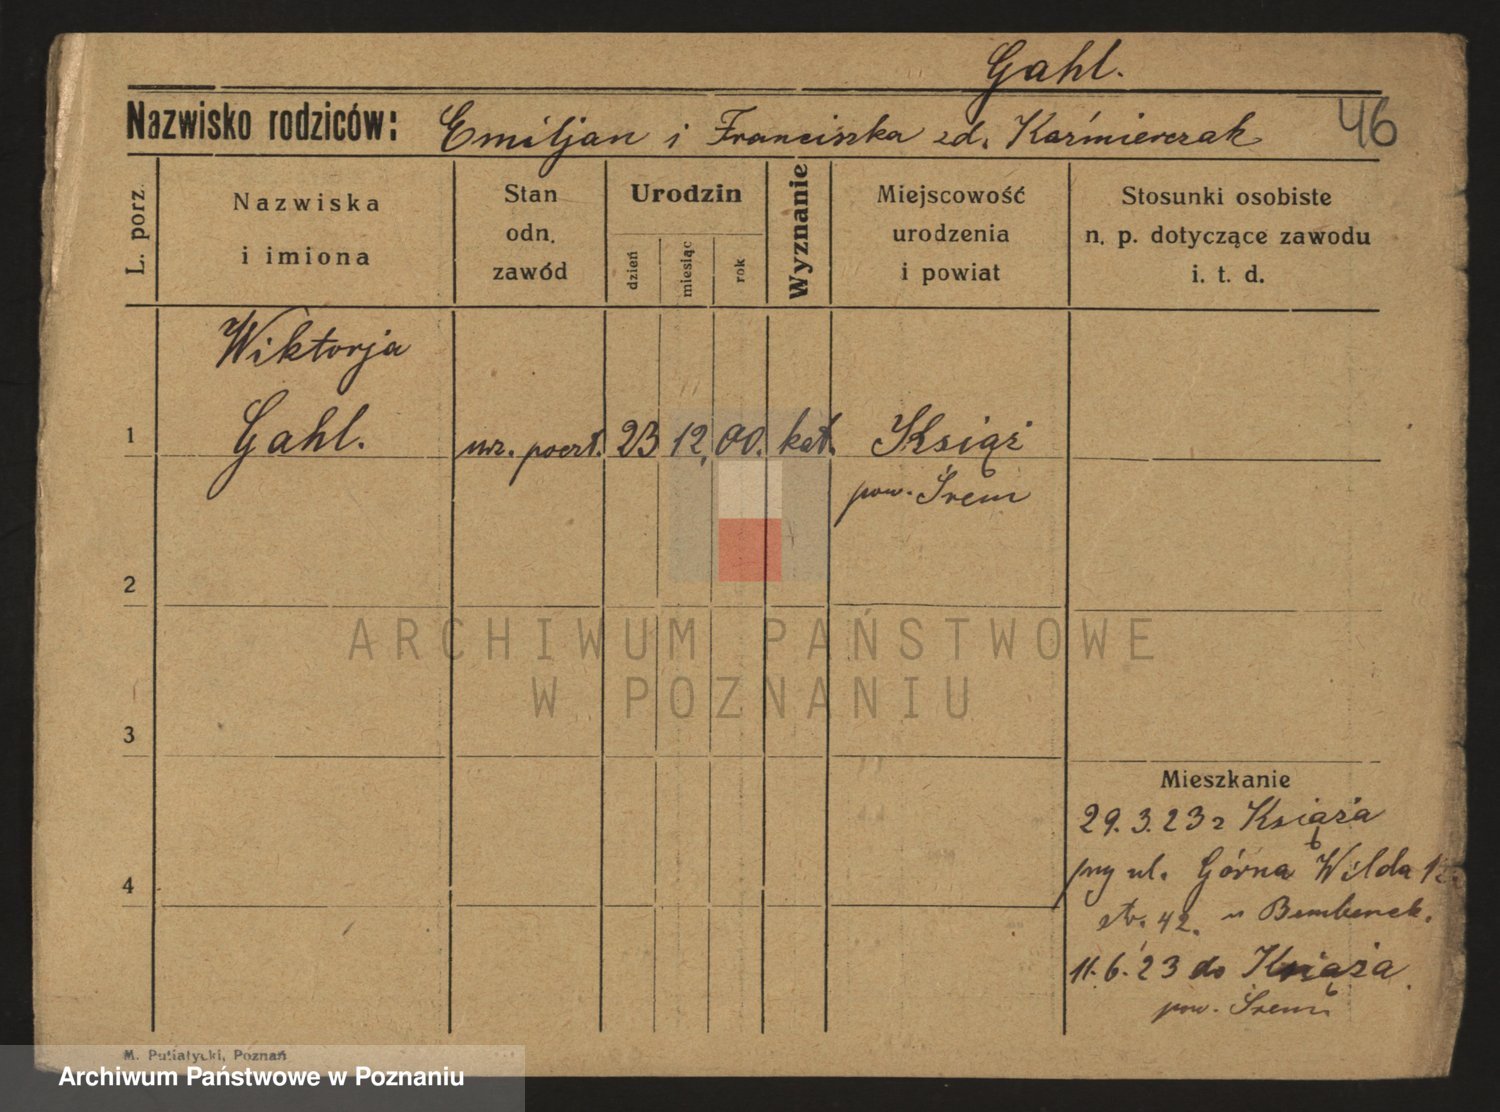 Gahl.
Nazwisko rodziców: Emiljan i Franciszka zd. Kaźmierczak
46
L. porz.
Nazwiska
i imiona
Stan
odn.
zawód
Urodzin
dzień
miesiąc
rok
Wyznanie
Miejscowość
urodzenia
i powiat
Stosunki osobiste
n. p. dotyczące zawodu
i. t. d.
Wiktorja
1 Gahl. urz. poczt. 23 12. 00. kat. Książ
pow. Śrem
2
ARCHIWUM PAŃSTWOWE
W POZNANIU
3
4
Mieszkanie
29. 3. 23 z Książa
przy ul. Górna Wilda
str. 42. u Bembenek.
11. 6. 23 do Książa
pow. Śrem
M. Putiatycki, Poznań
Archiwum Państwowe w Poznaniu